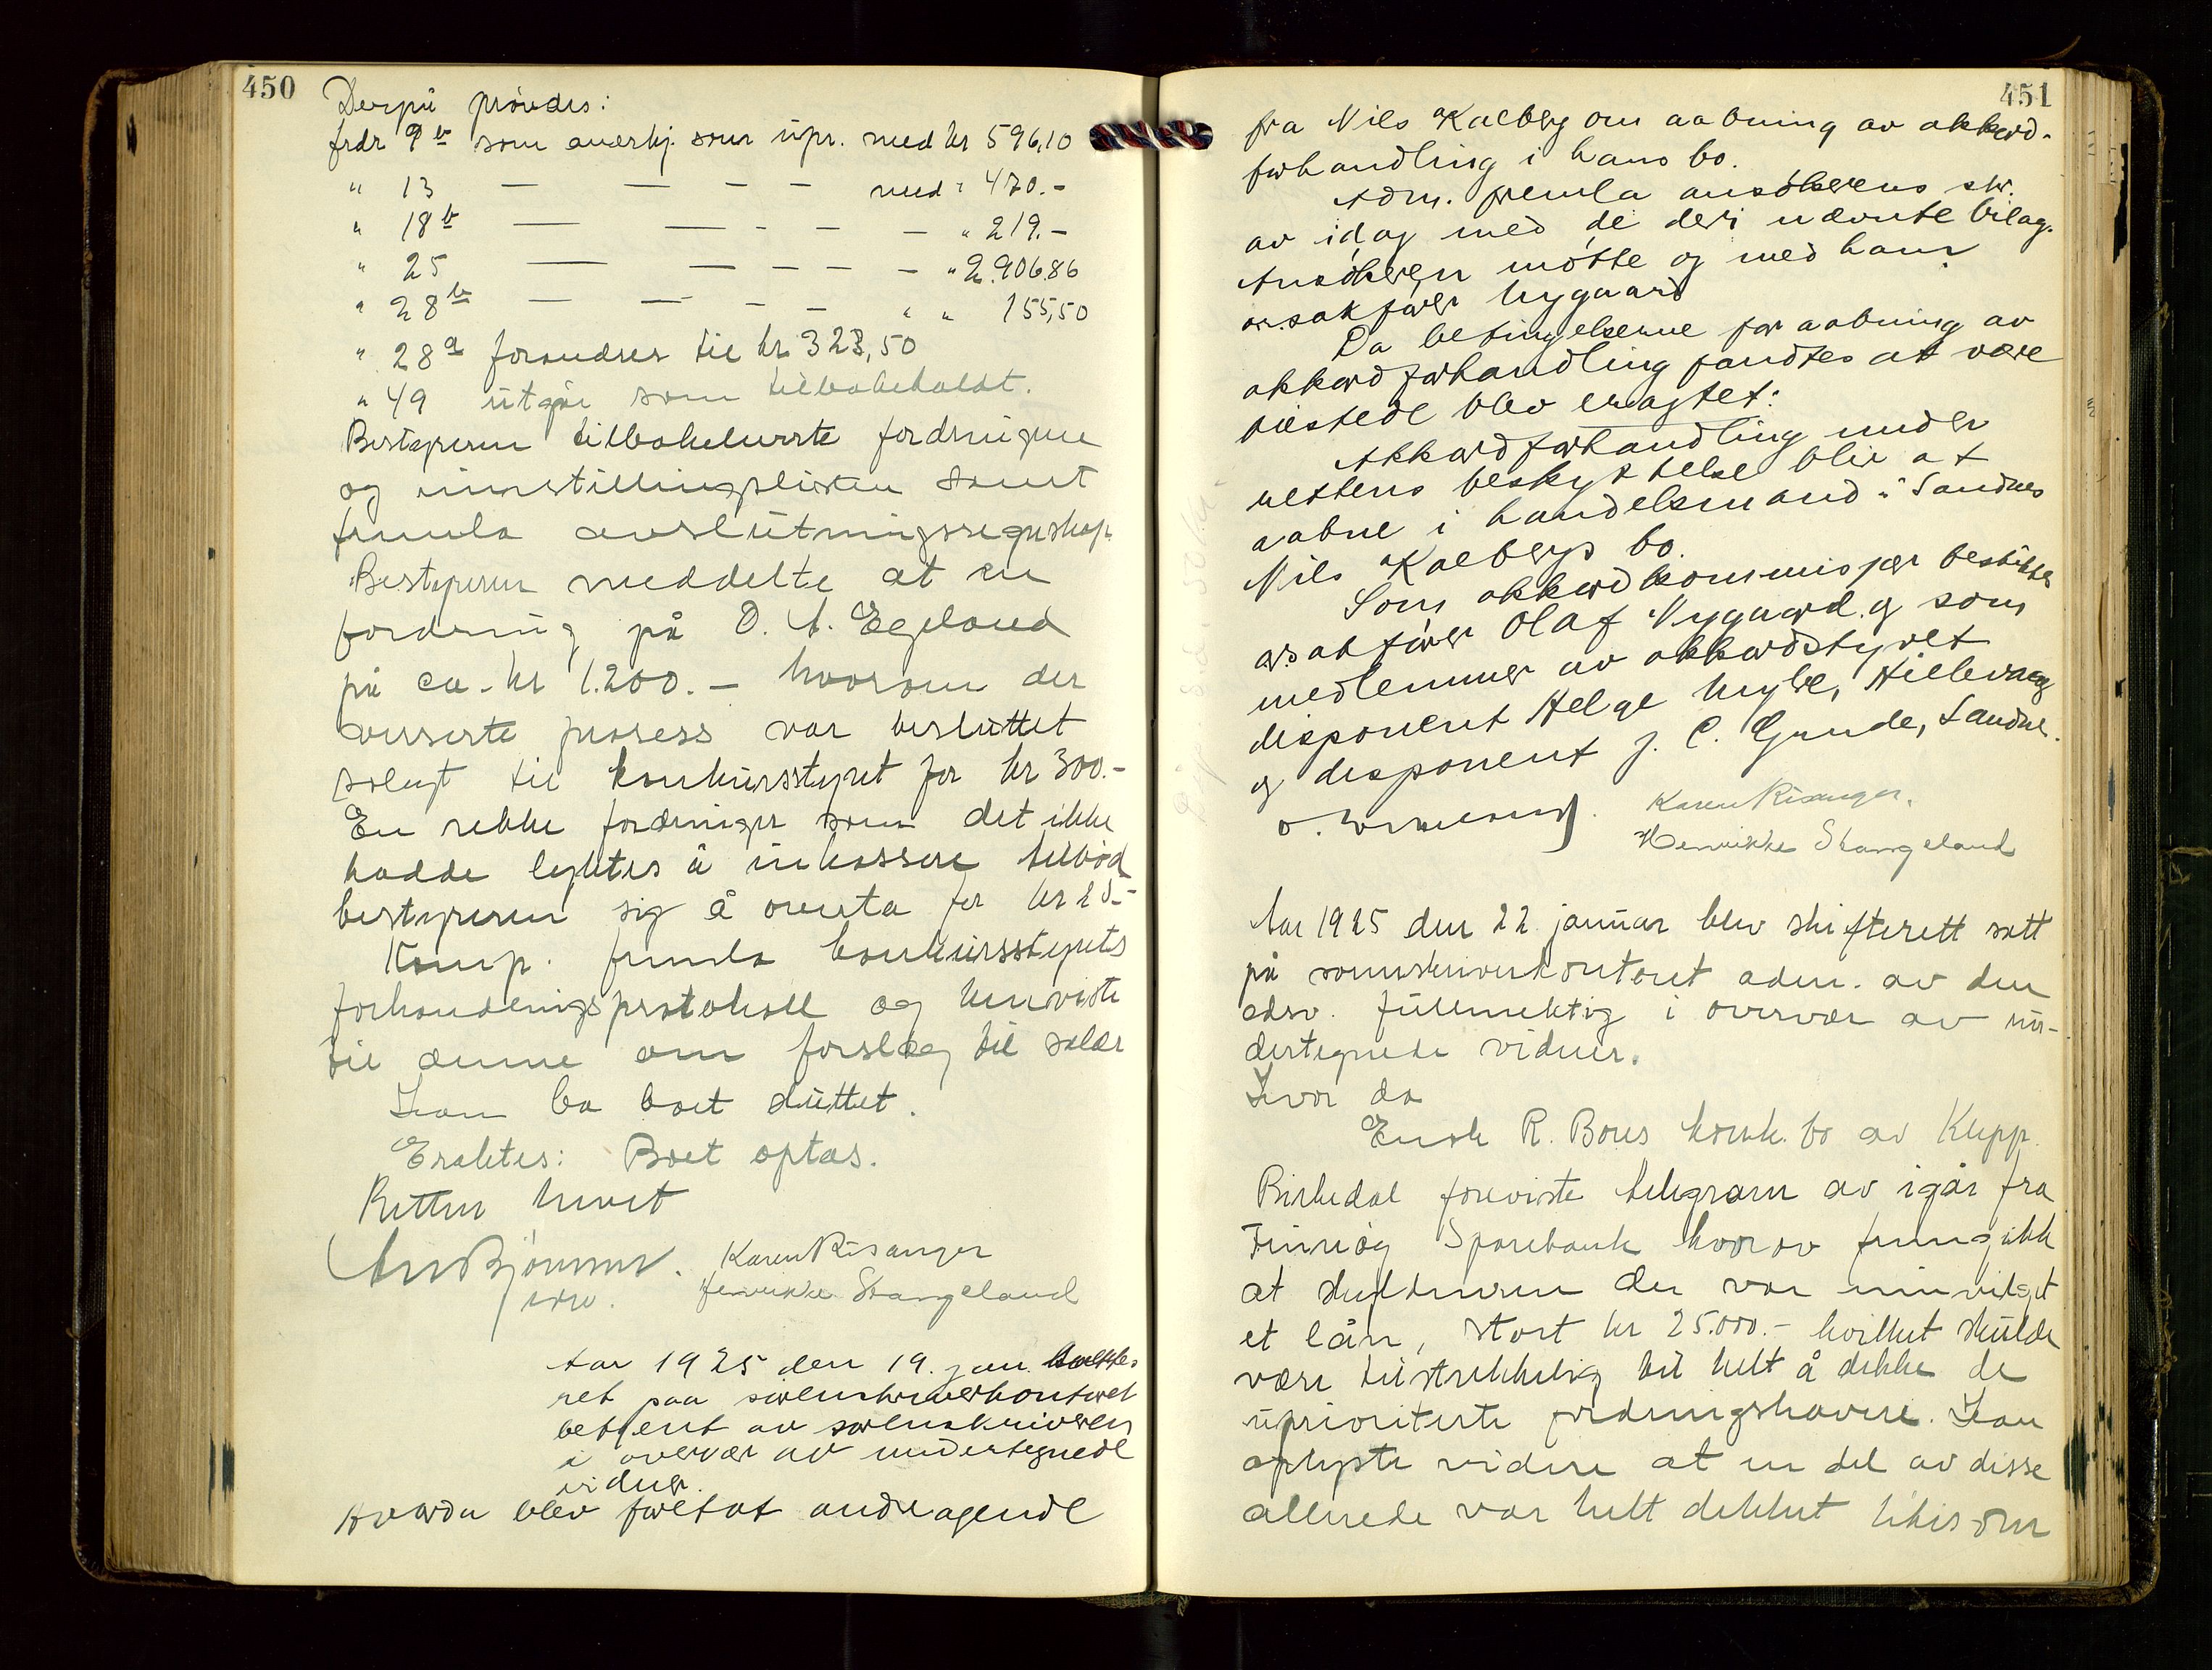 450
Derpå prøvdes:
frdr 9b som anerkj. som upr. med kr 596,10
" 13 — — — — med " 470.-
" 18b — — - - — " 219.-
" 25 — — — — — " 2.906.86
" 28b — — — — " " 155,50
" 28a forandres til kr 323,50
" 49 utgår som tilbakekaldt.
Bestyreren tilbakeleverte fordringene
og innstillingslisten samt
fremla avslutningsregnskap.
Bestyreren meddelte at en
fordring på O. A. Egeland
på ca. kr 1.200.- hvorom der
verserte prosess var besluttet
solgt til konkursstyret for kr 300.-
En rekke fordringer som det ikke
hadde lyktes å inkassere tilbød
bestyreren sig å overta for kr 25.-
Komp. fremla konkursstyrets
forhandlingsprotokoll og henviste
til denne om forslag til salær
Han ba boet sluttet.
Eraktes: Boet optas.
Retten hevet
Karen Risanger
Henrikke Stangeland
Aar 1925 den 19. jan. holdtes
ret paa sorenskriverkontoret
betjent av sorenskriveren
i overvær av undertegnede
vidner.
Hvorda blev foretat andragende
451
fra Nils Kalberg om aabning av akkord-
forhandling i hans bo.
Adm. fremla ansökerens skr.
av idag med de deri nævnte bilag.
Ansökeren mötte og med ham
o.r.sakförer Nygaard
Da betingelserne for aabning av
akkordforhandling fandtes at være
tilstede blev eragtet:
Akkordforhandling under
rettens beskyttelse blir at
aabne i handelsmand i Sandnes
Nils Kalbergs bo.
Som akkordkommissær beskikkes
o.r.sakförer Olaf Nygaard og som
medlemmer av akkordstyret
disponent Helge Myhre, Hillevaag
og disponent J. C. Gjunde, Sandnes.
Karen Risanger.
Henrikke Stangeland
Aar 1925 den 22. januar blev skifterett satt
på sorenskriverkontoret adm. av den
edsv. fullmektig i overvær av un-
dertegnede vidner.
Hvor da
Enok R. Bores konk. bo av Klepp.
Birkedal foreviste telegram av igår fra
Finnøy Sparebank hvorav fremgikk
at skyldneren der var innvilget
et lån, stort kr 25.000.- hvilket skulde
være tilstrekkelig til helt å dekke de
uprioriterte fordringshavere. Han
oplyste videre at en del av disse
allerede var helt dekket likesom